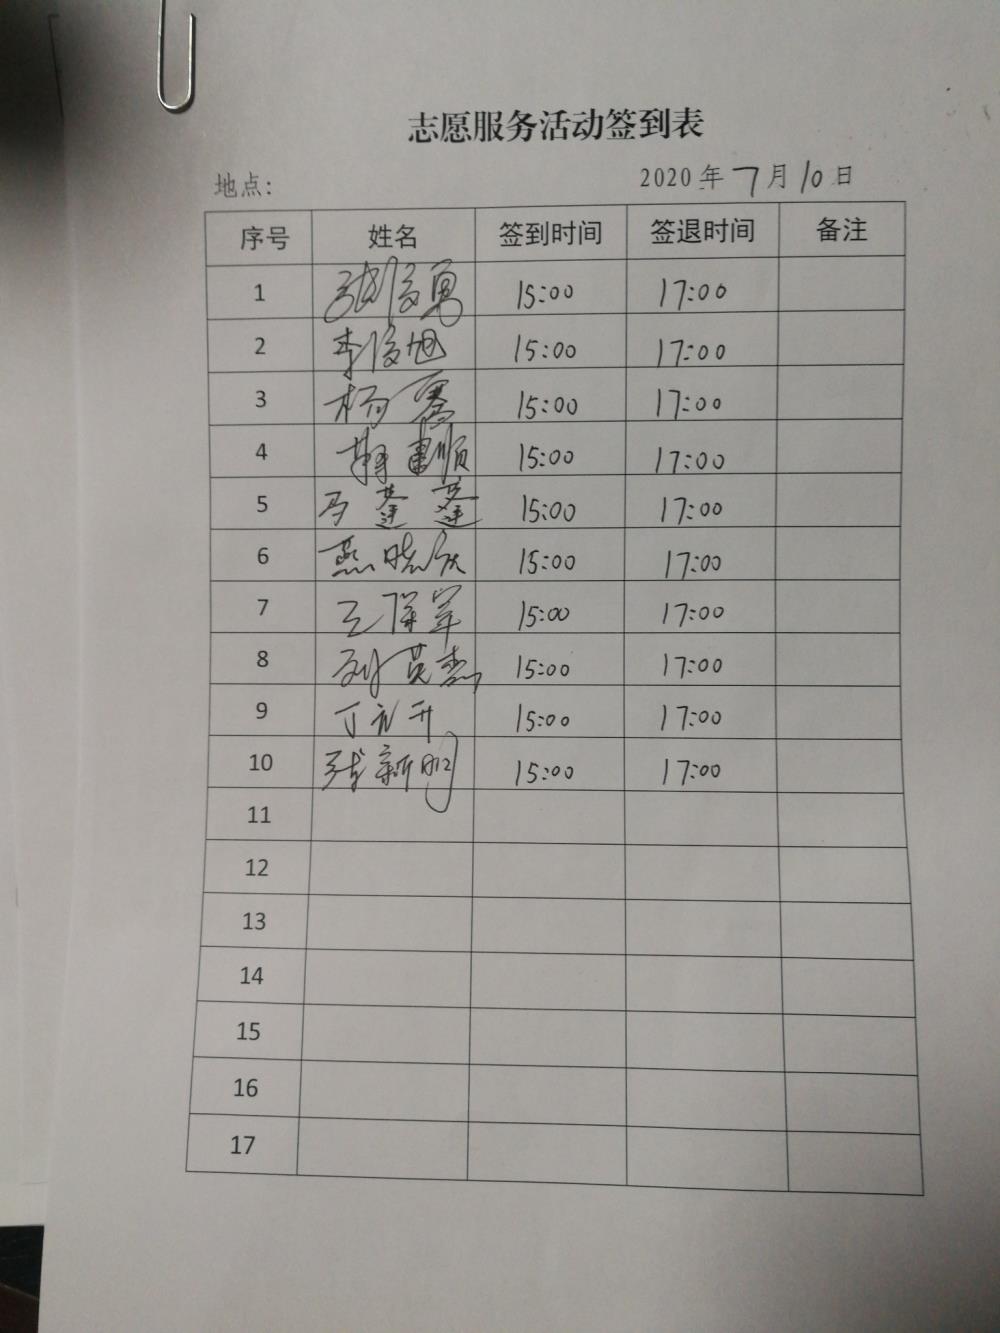 志愿服务活动签到表
地点: 2020 年 7 月 10 日
序号 姓名 签到时间 签退时间 备注
1 张俊勇 15:00 17:00
2 李俊旭 15:00 17:00
3 杨骞 15:00 17:00
4 15:00 17:00
5 马蓬蓬 15:00 17:00
6 燕晓庆 15:00 17:00
7 王保军 15:00 17:00
8 刘英杰 15:00 17:00
9 丁 开 15:00 17:00
10 张新明 15:00 17:00
11
12
13
14
15
16
17